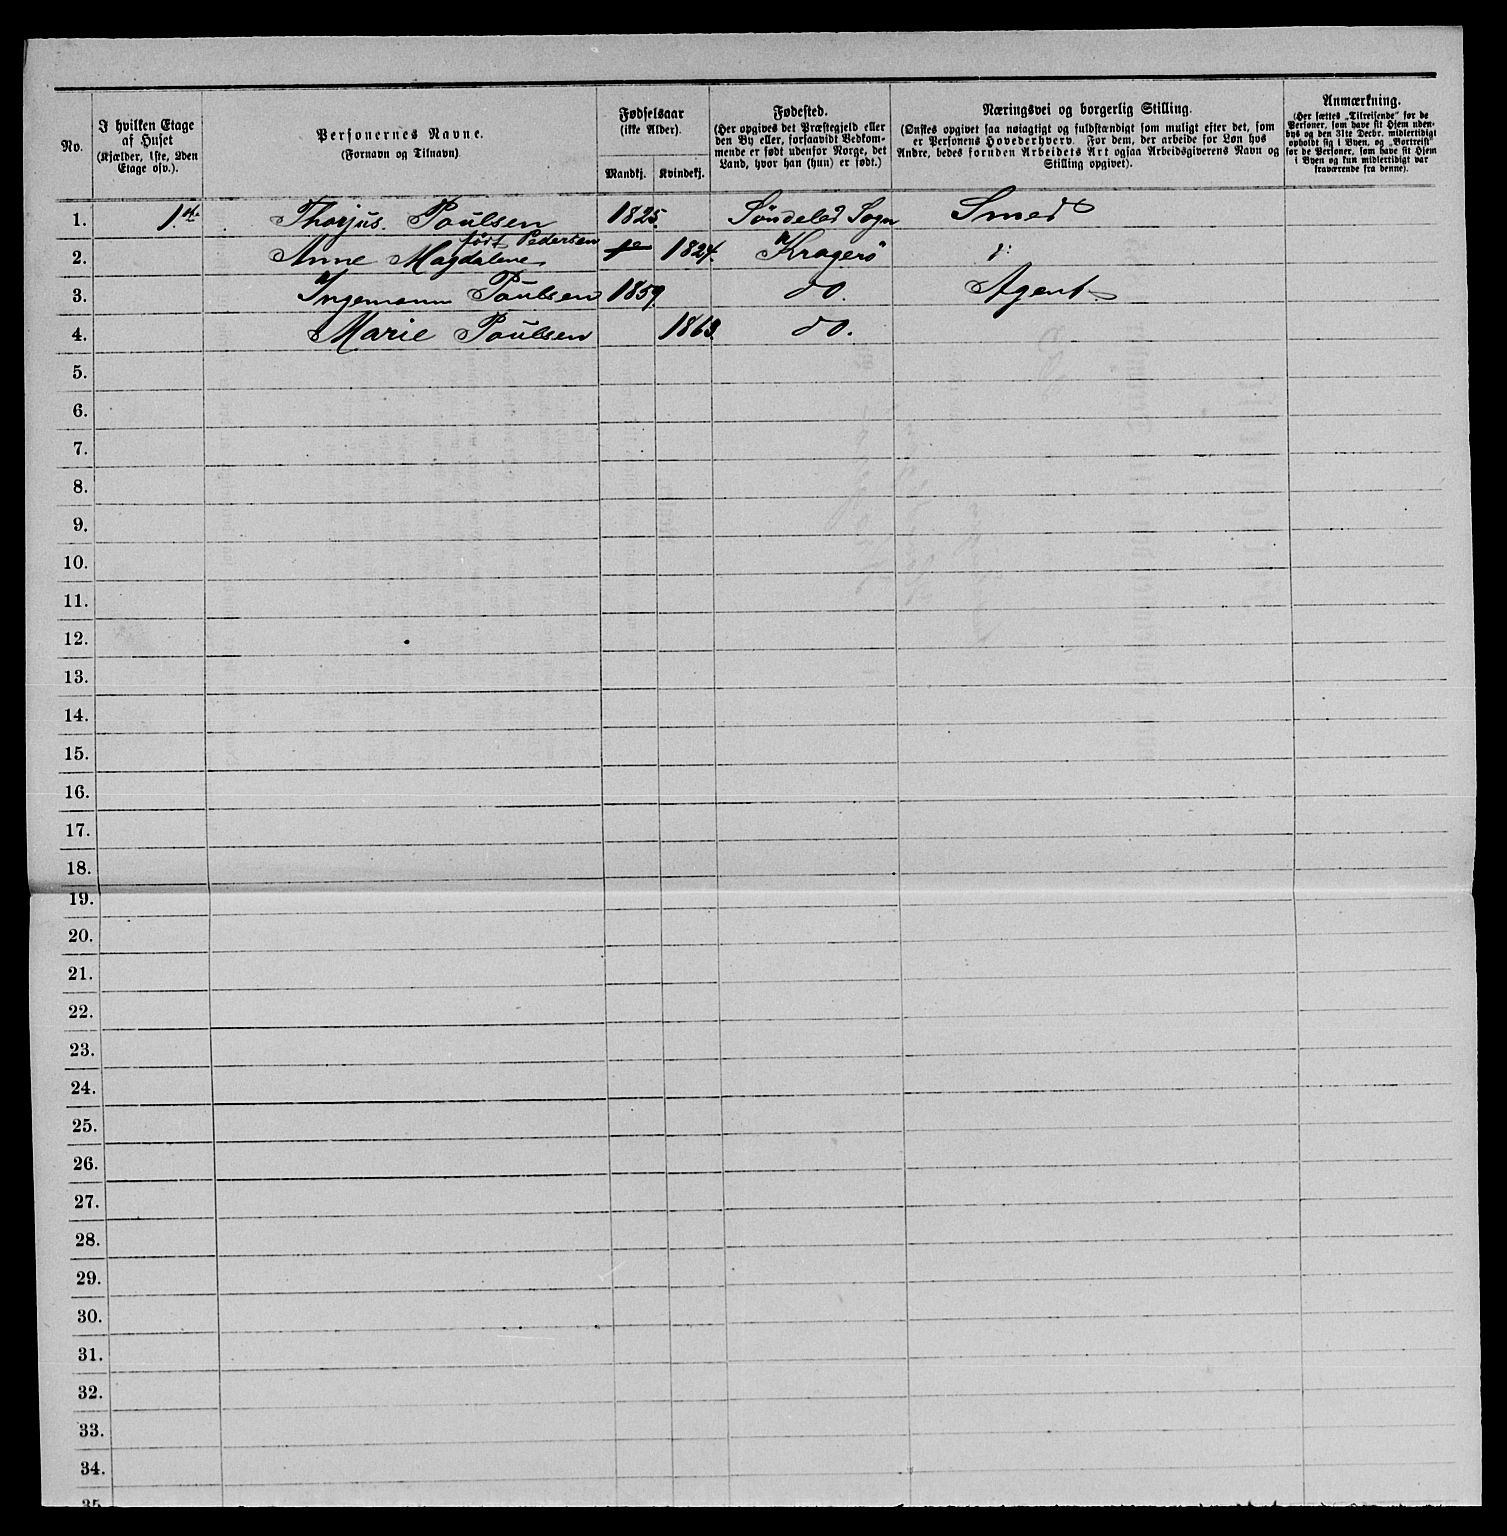 No.
I hvilken Etage
af Huset
(Kjælder, 1ste, 2den
Etage osv.).
Personernes Navne.
(Fornavn og Tilnavn)
Fødselsaar
(ikke Alder).
Mandkj. Kvindekj.
Fødested.
(Her opgives det Præstegjeld eller
den By eller, forsaavidt Vedkom-
mende er født udenfor Norge, det
Land, hvor han (hun) er født.)
Næringsvei og borgerlig Stilling.
(Ønskes opgivet saa nøiagtigt og fuldstændigt som muligt efter det, som
er Personens Hovederhverv. For dem, der arbeide for Løn hos
Andre, bedes foruden Arbeidets Art ogsaa Arbeidsgiverens Navn og
Stilling opgivet).
Anmærkning.
(Her sættes „Tilreisende" for de
Personer, som have sit Hjem uden-
bys og den 31te Decbr. midlertidigt
opholdt sig i Byen, og „Bortreist"
for de Personer, som have sit Hjem
i Byen og kun midlertidigt var
fraværende fra denne).
1. 1. Thorjus. Poulsen 1825. Söndeled Sogn Smed
født Pedersen
2. Anne Magdalene 1824. Kragerö
3. Ingemann Poulsen 1859. do. Agent
4. Marie Poulsen 1863. do.
5.
6.
7.
8.
9.
10.
11.
12.
13.
14.
15.
16.
17.
18.
19.
20.
21.
22.
23.
24.
25.
26.
27.
28.
29.
30.
31.
32.
33.
34.
35